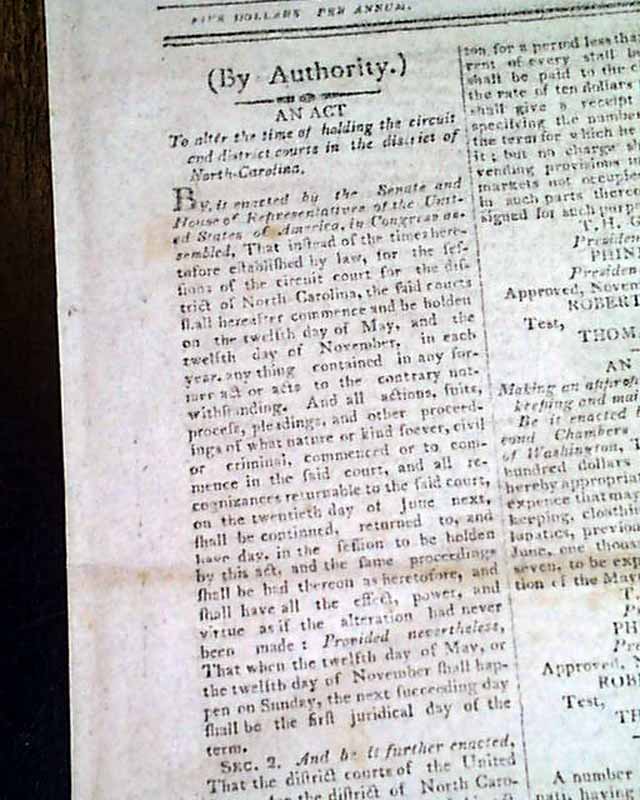 FIVE DOLLARS PER ANNUM.
(By Authority.)
AN ACT
To alter the time of holding the circuit
and district courts in the district of
North-Carolina.
By, is enacted by the Senate and
House of Representatives of the Unit-
ed States of America, in Congress as-
sembled, That instead of the times here-
tofore established by law, for the ses-
sions of the circuit court for the dis-
trict of North Carolina, the said courts
shall hereafter commence and be holden
on the twelfth day of May, and the
twelfth day of November, in each
year, any thing contained in any for-
mer act or acts to the contrary not-
withstanding. And all actions, suits,
process, pleadings, and other proceed-
ings of what nature or kind soever, civil
or criminal, commenced or to com-
mence in the said court, and all re-
cognizances returnable to the said court,
on the twentieth day of June next,
shall be continued, returned to, and
have day, in the session to be holden
by this act, and the same proceedings
shall be had thereon as heretofore, and
shall have all the effect, power, and
virtue as if the alteration had never
been made: Provided nevertheless,
That when the twelfth day of May, or
the twelfth day of November shall hap-
pen on Sunday, the next succeeding day
shall be the first juridical day of the
term.
SEC. 2. And be it further enacted,
That the district courts of the United
for the district of North Caro-
ton, for a period less than
rent of every stall be
shall be paid to the c
the rate of ten dollars
shall give a receipt
specifying the number
the term for which he
it; but no charge sh
vending provisions i
markets not occupie
in such parts there
signed for such purpo
T. H. G
Presiden
PHINE
Presiden
Approved, Novem
ROBERT
Test,
THOM
AN
Making an approp
keeping and mai
Be it enacted b
cond Chambers
of Washington, T
hundred dollars
hereby appropriat
expence that may
keeping, cloathi
lunatics, previou
June, one thous
seven, to be exp
tion of the May
T.
Pr
PHI
Pre
Approved,
ROB
Test,
TH
A number
path, having